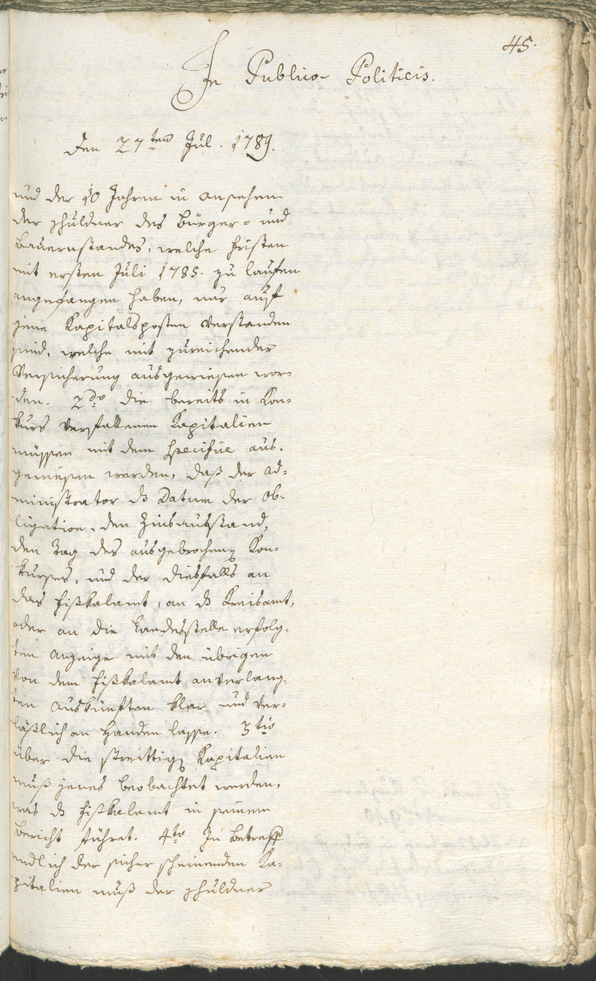 45.
In Publico Politicis.
Den 27ten Jul. 1789.
und der 10 Jahren in ansehen
der Schuldner des Bürger- und
Bauernstandes, welche Fristen
mit ersten Juli 1785. zu laufen
angefangen haben, nur auf
jene Kapitalsposten verstanden
sind, welche mit zureichender
Versicherung ausgewiesen wor-
den. 2do die bereits in Kon-
kurs verfallenen Kapitalien
müssen mit dem Specifice aus-
gewiesen werden, daß der Ad-
ministrator ds Datum der Ob-
ligation, den Zinsausstand,
den Tag des ausgebrochenen Kon-
kurses, und der diesfalls an
das Fiskalamt, an ds Kreisamt,
oder an die Landesstelle erfolg-
ten Anzeige mit den übrigen
von dem Fiskalamt anverlang-
ten Auskünften klar und ver-
läßlich an Handen lasse. 3tio
über die streittigen Kapitalien
muß jenes beobachtet werden,
was ds Fiskalamt in seinem
Bericht führet. 4to In Betreff
endlich der sicher scheinenden Ka-
pitalien muß der Schuldner